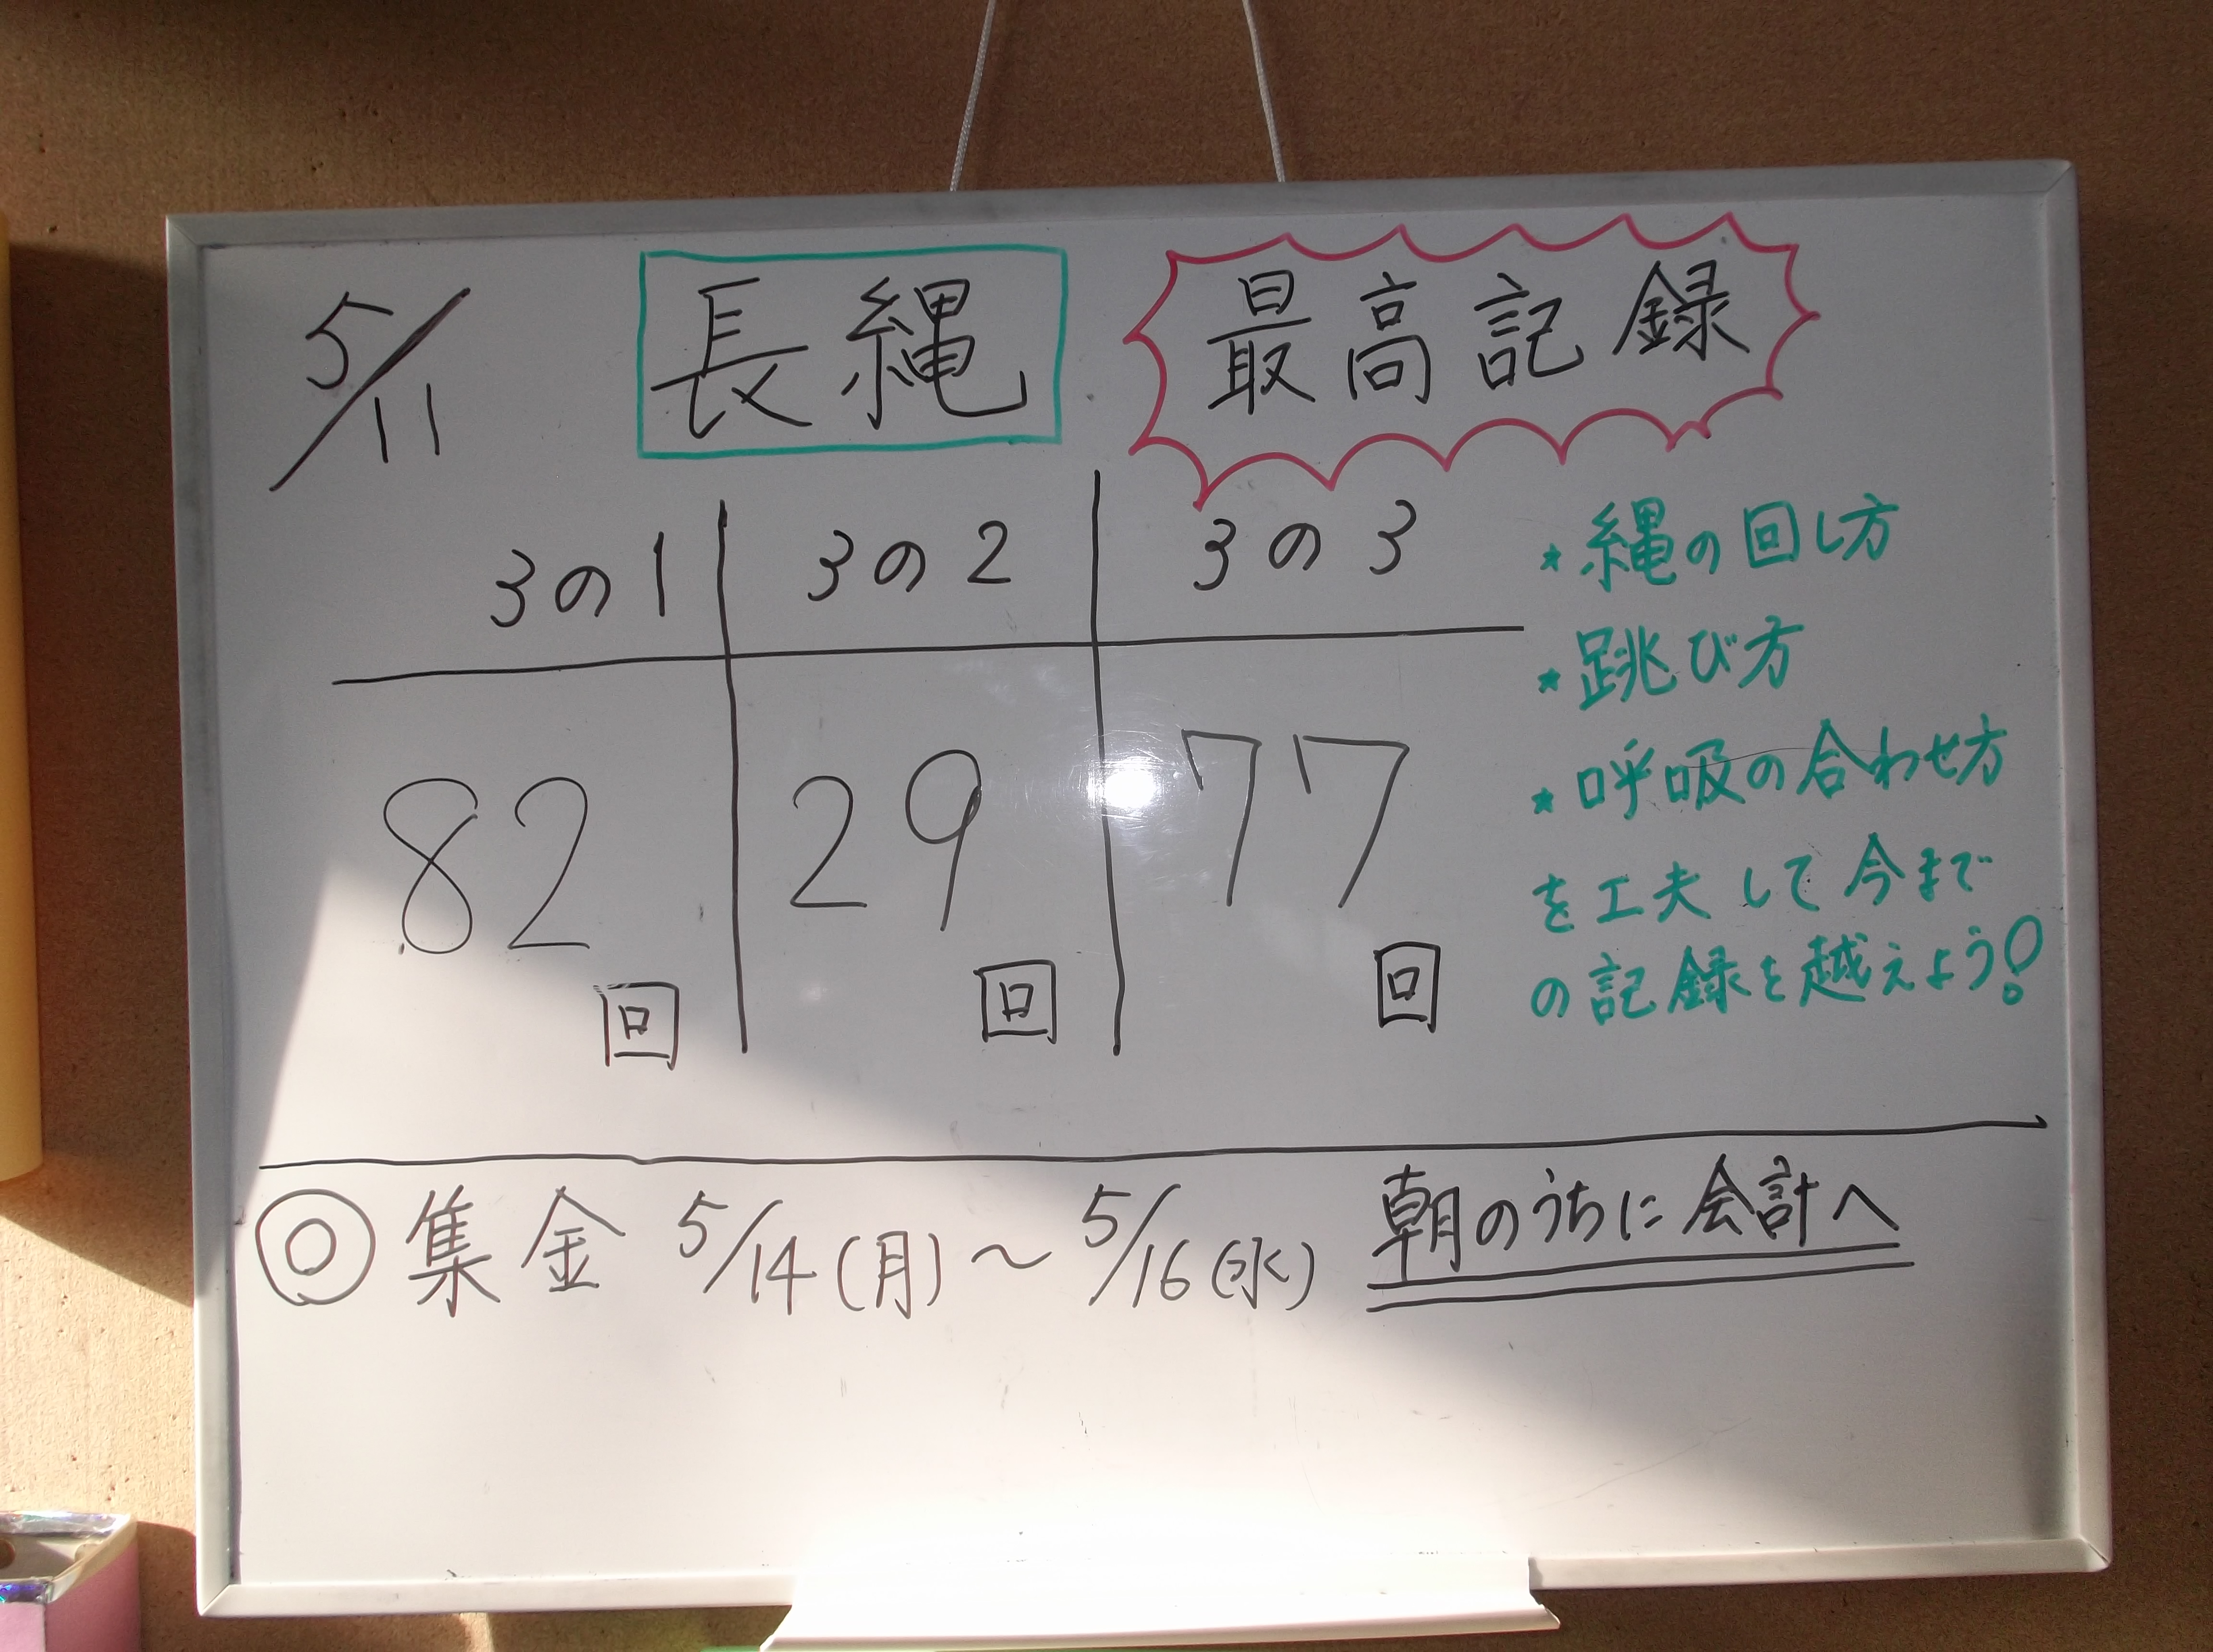 5/11 長縄 最高記録
3の1 3の2 3の3
82回 29回 77回
★縄の回し方
★跳び方
★呼吸の合わせ方
を工夫して今まで
の記録を越えよう!
◎集金 5/14(月)～5/16(水) 朝のうちに会計へ